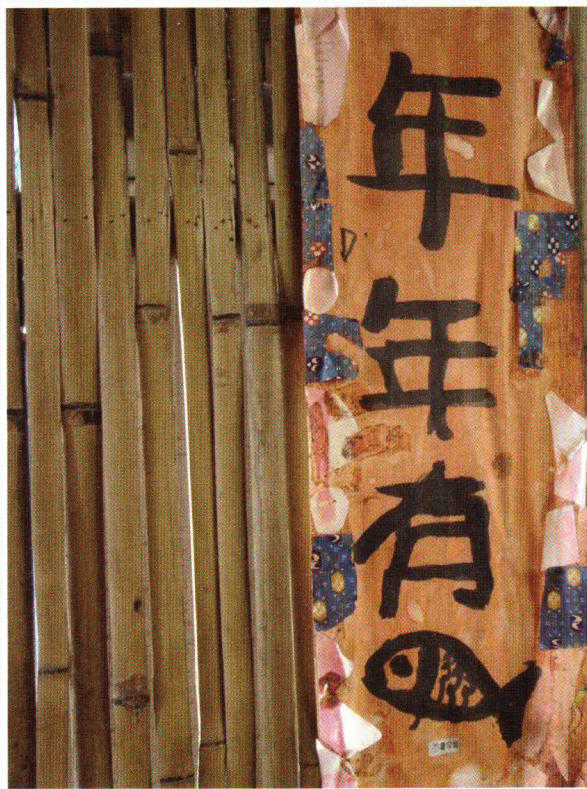 年年有